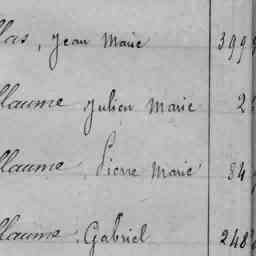 llas, Jean Marie 399
llaume Julien Marie 2
llaume, Pierre Marie 84
llaume, Gabriel 248